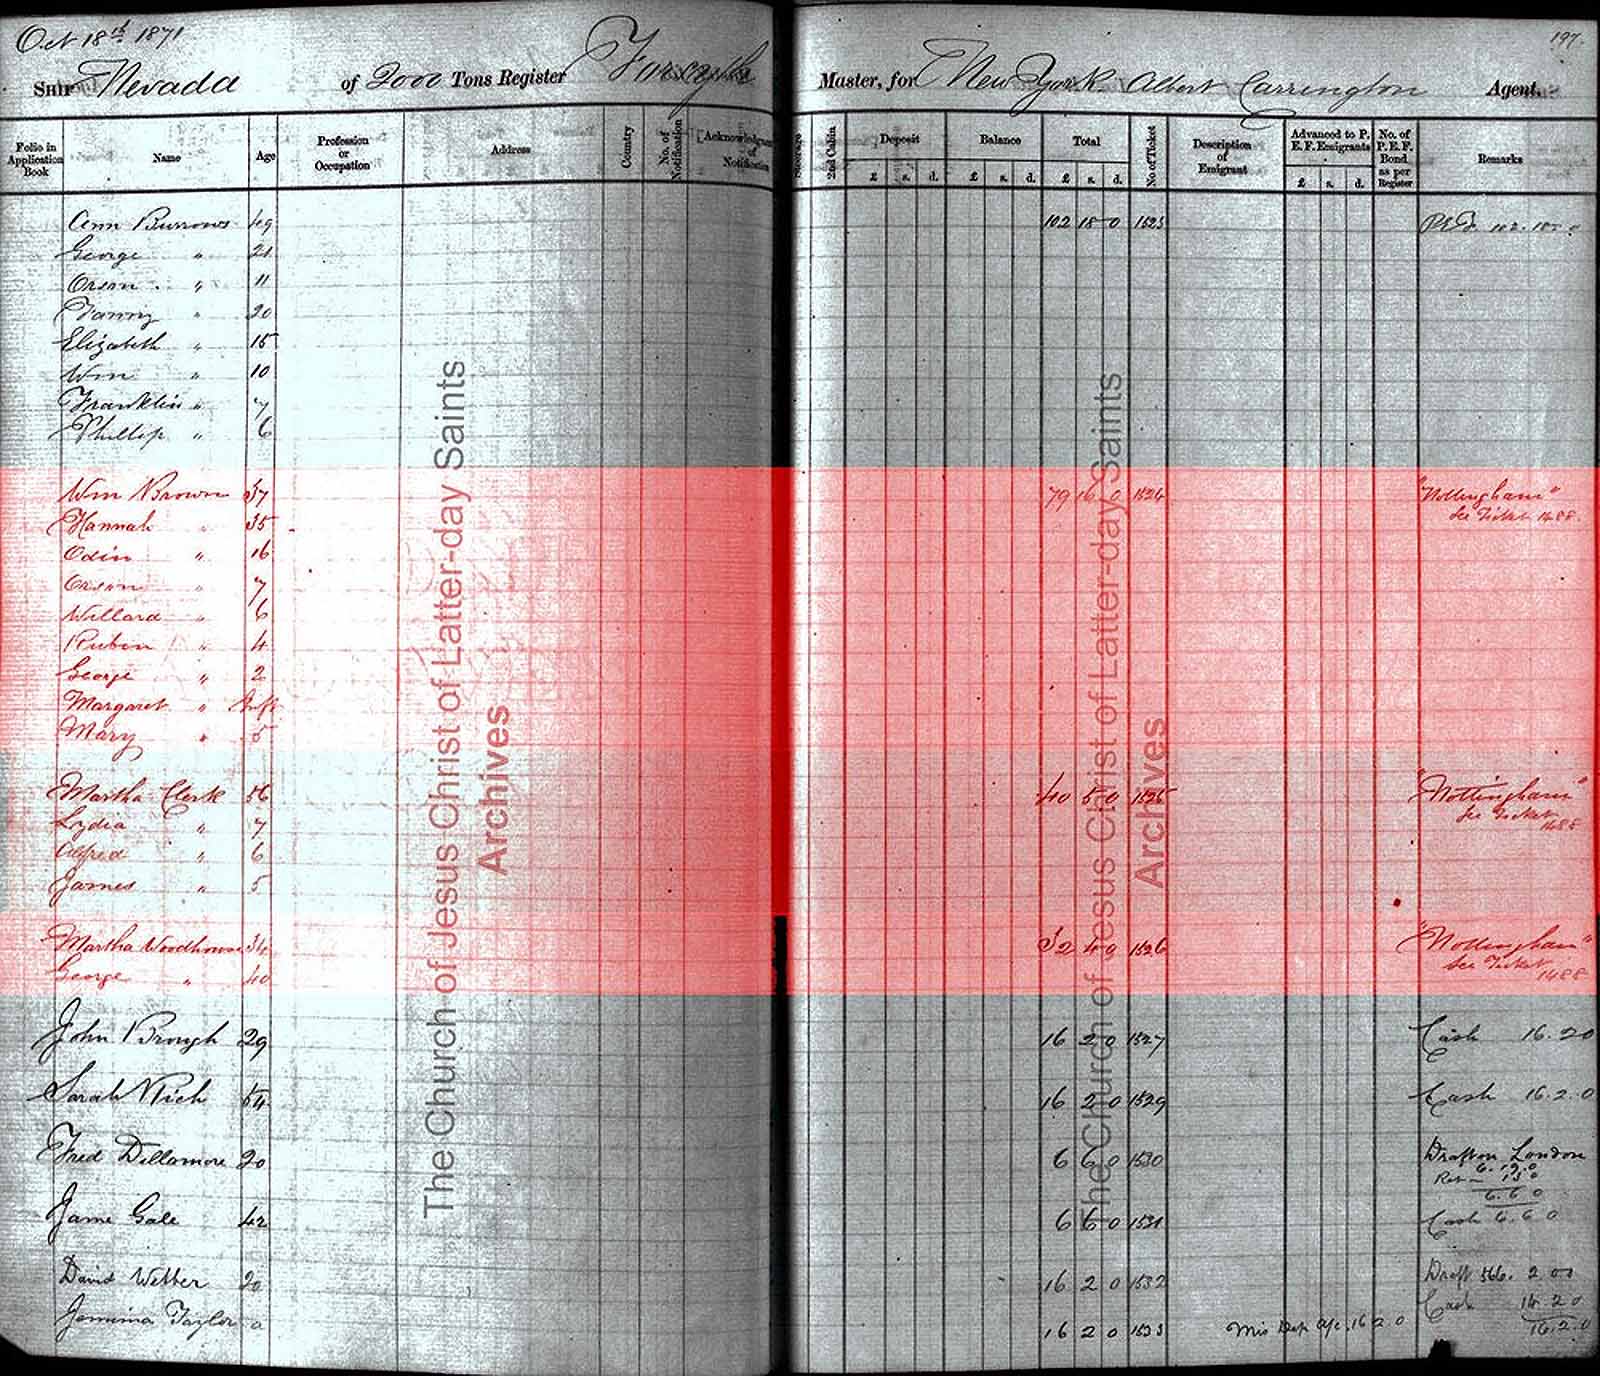 Oct 18th 1871
197.
Ship Nevada of 2000 Tons Register Forsyth Master, for New York Albert Carrington Agent.
Folio in Application Book Name Age Profession or Occupation Address Country No. of Notification Acknowledgment of Notification Steerage 2nd Cabin Deposit £ s. d. Balance £ s. d. Total £ s. d. No of Ticket Description of Emigrant Advanced to P. E. F. Emigrants £ s. d. No. of P. E. F. Bond as per Register Remarks
Ann Burrows 49 102 18 0 1523 P.E.F. 102.18.0
George " 21
Orson " 11
Fanny " 20
Elizabeth " 15
Wm " 10
Franklin " 7
Phillip " 6
Wm Brown 37 79 16 0 1524 "Nottingham"
See Ticket 1488.
Hannah " 35
Odin " 16
Orson " 7
Willard " 6
Rubin " 4
George " 2
Margaret " Inft
Mary " 5
Martha Clerk 56 40 5 0 1525 "Nottingham"
See Ticket 1488
Lydia " 7
Alfred " 6
James " 5
Martha Woodhouse 34 32 4 0 1526 "Nottingham"
See Ticket 1488
George " 40
John Brough 29 16 2 0 1527 Cash 16.2.0
Sarah Rich 54 16 2 0 1529 Cash 16.2.0
Fred Dellamore 20 6 6 0 1530 Draft on London
6.19.0
Retn 13 0
6.6.0
Jame Gale 42 6 6 0 1531 Cash 6.6.0
David Webber 20 16 2 0 1532 Draft 566. 2.00
Cash 14.2.0
16.2.0
Jemima Taylor a 16 2 0 1533 Mis Dep a/c. 16 2.0
The Church of Jesus Christ of Latter-day Saints
Archives
The Church of Jesus Christ of Latter-day Saints
Archives